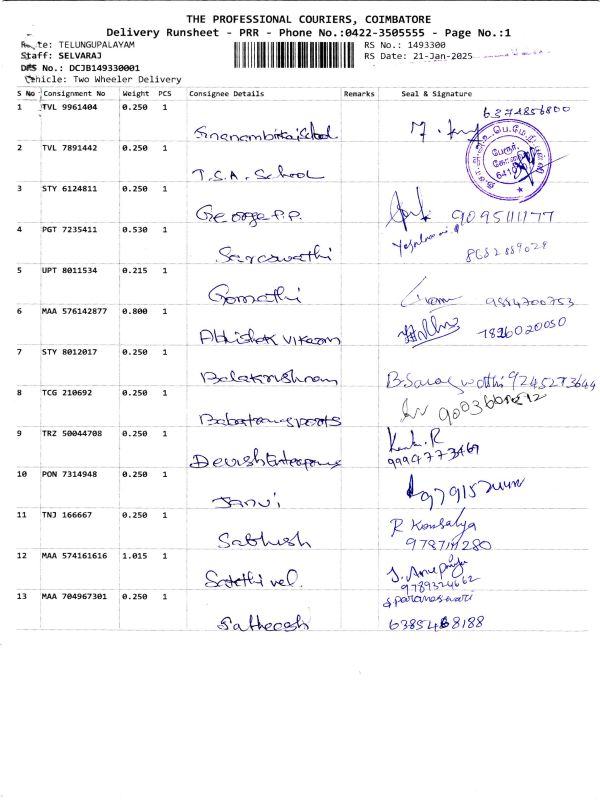 THE PROFESSIONAL COURIERS, COIMBATORE
Delivery Runsheet - PRR - Phone No.:0422-3505555 - Page No.:1
Route: TELUNGUPALAYAM
RS No.: 1493300
Staff: SELVARAJ
RS Date: 21-Jan-2025
DRS No.: DCJB149330001
Vehicle: Two Wheeler Delivery
S No Consignment No Weight PCS Consignee Details Remarks Seal & Signature
1 TVL 9961404 0.250 1 6374856800
Gnanambikai School
2 TVL 7891442 0.250 1
T.S.A. School
3 STY 6124811 0.250 1
George P.P. 9095111177
4 PGT 7235411 0.530 1
Saraswathi
5 UPT 8011534 0.215 1
Gomathi 9884700753
6 MAA 576142877 0.800 1
Abhishek Vikram 7826020050
7 STY 8012017 0.250 1
Balakrishnan B. Saraswathi 9245273644
8 TCG 210692 0.250 1
9 TRZ 50044708 0.250 1
Devish Enterprises 9994773469
10 PON 7314948 0.250 1
Janvi
11 TNJ 166667 0.250 1 R Kousalya
Sabhish
12 MAA 574161616 1.015 1
Sakthi vel. 9789324662
13 MAA 704967301 0.250 1 parameswari
Satheesh 6385468188